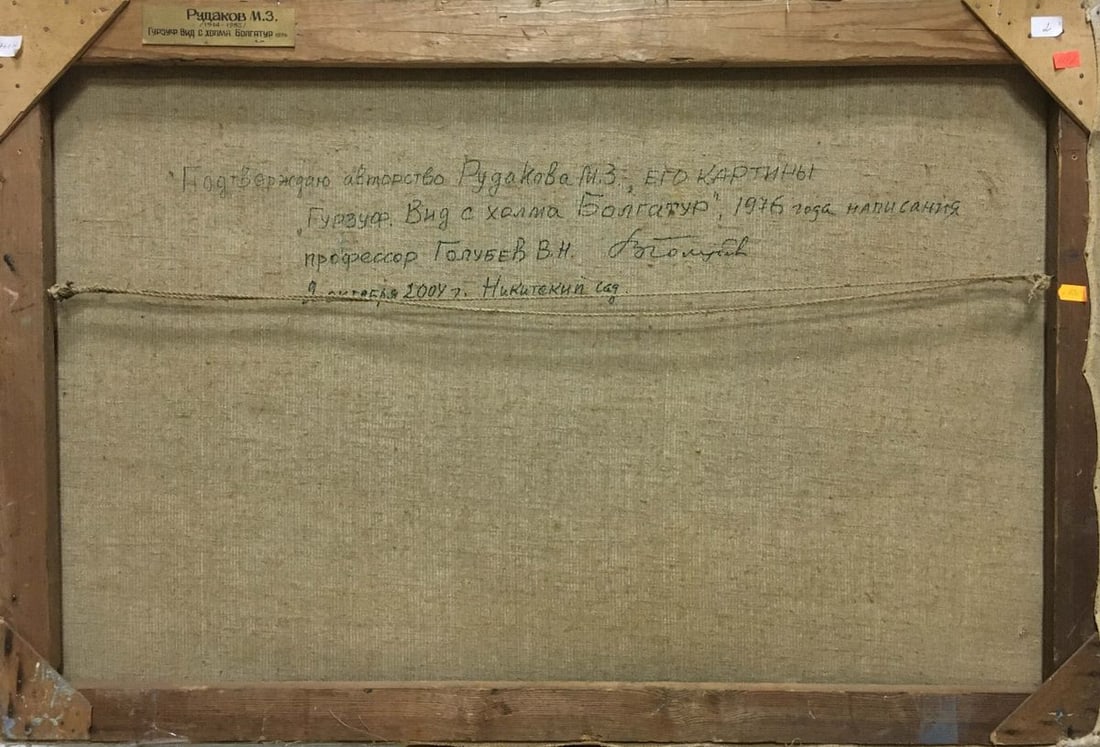 Рудаков М.З.
/1914-1985/
Гурзуф. Вид с холма Болгатур 1976
2
"Подтверждаю авторство Рудакова М.З., ЕГО КАРТИНЫ
„Гурзуф. Вид с холма Болгатур", 1976 года написания
профессор Голубев В.Н. ВГолубев
9 октября 2004 г. Никитский сад.